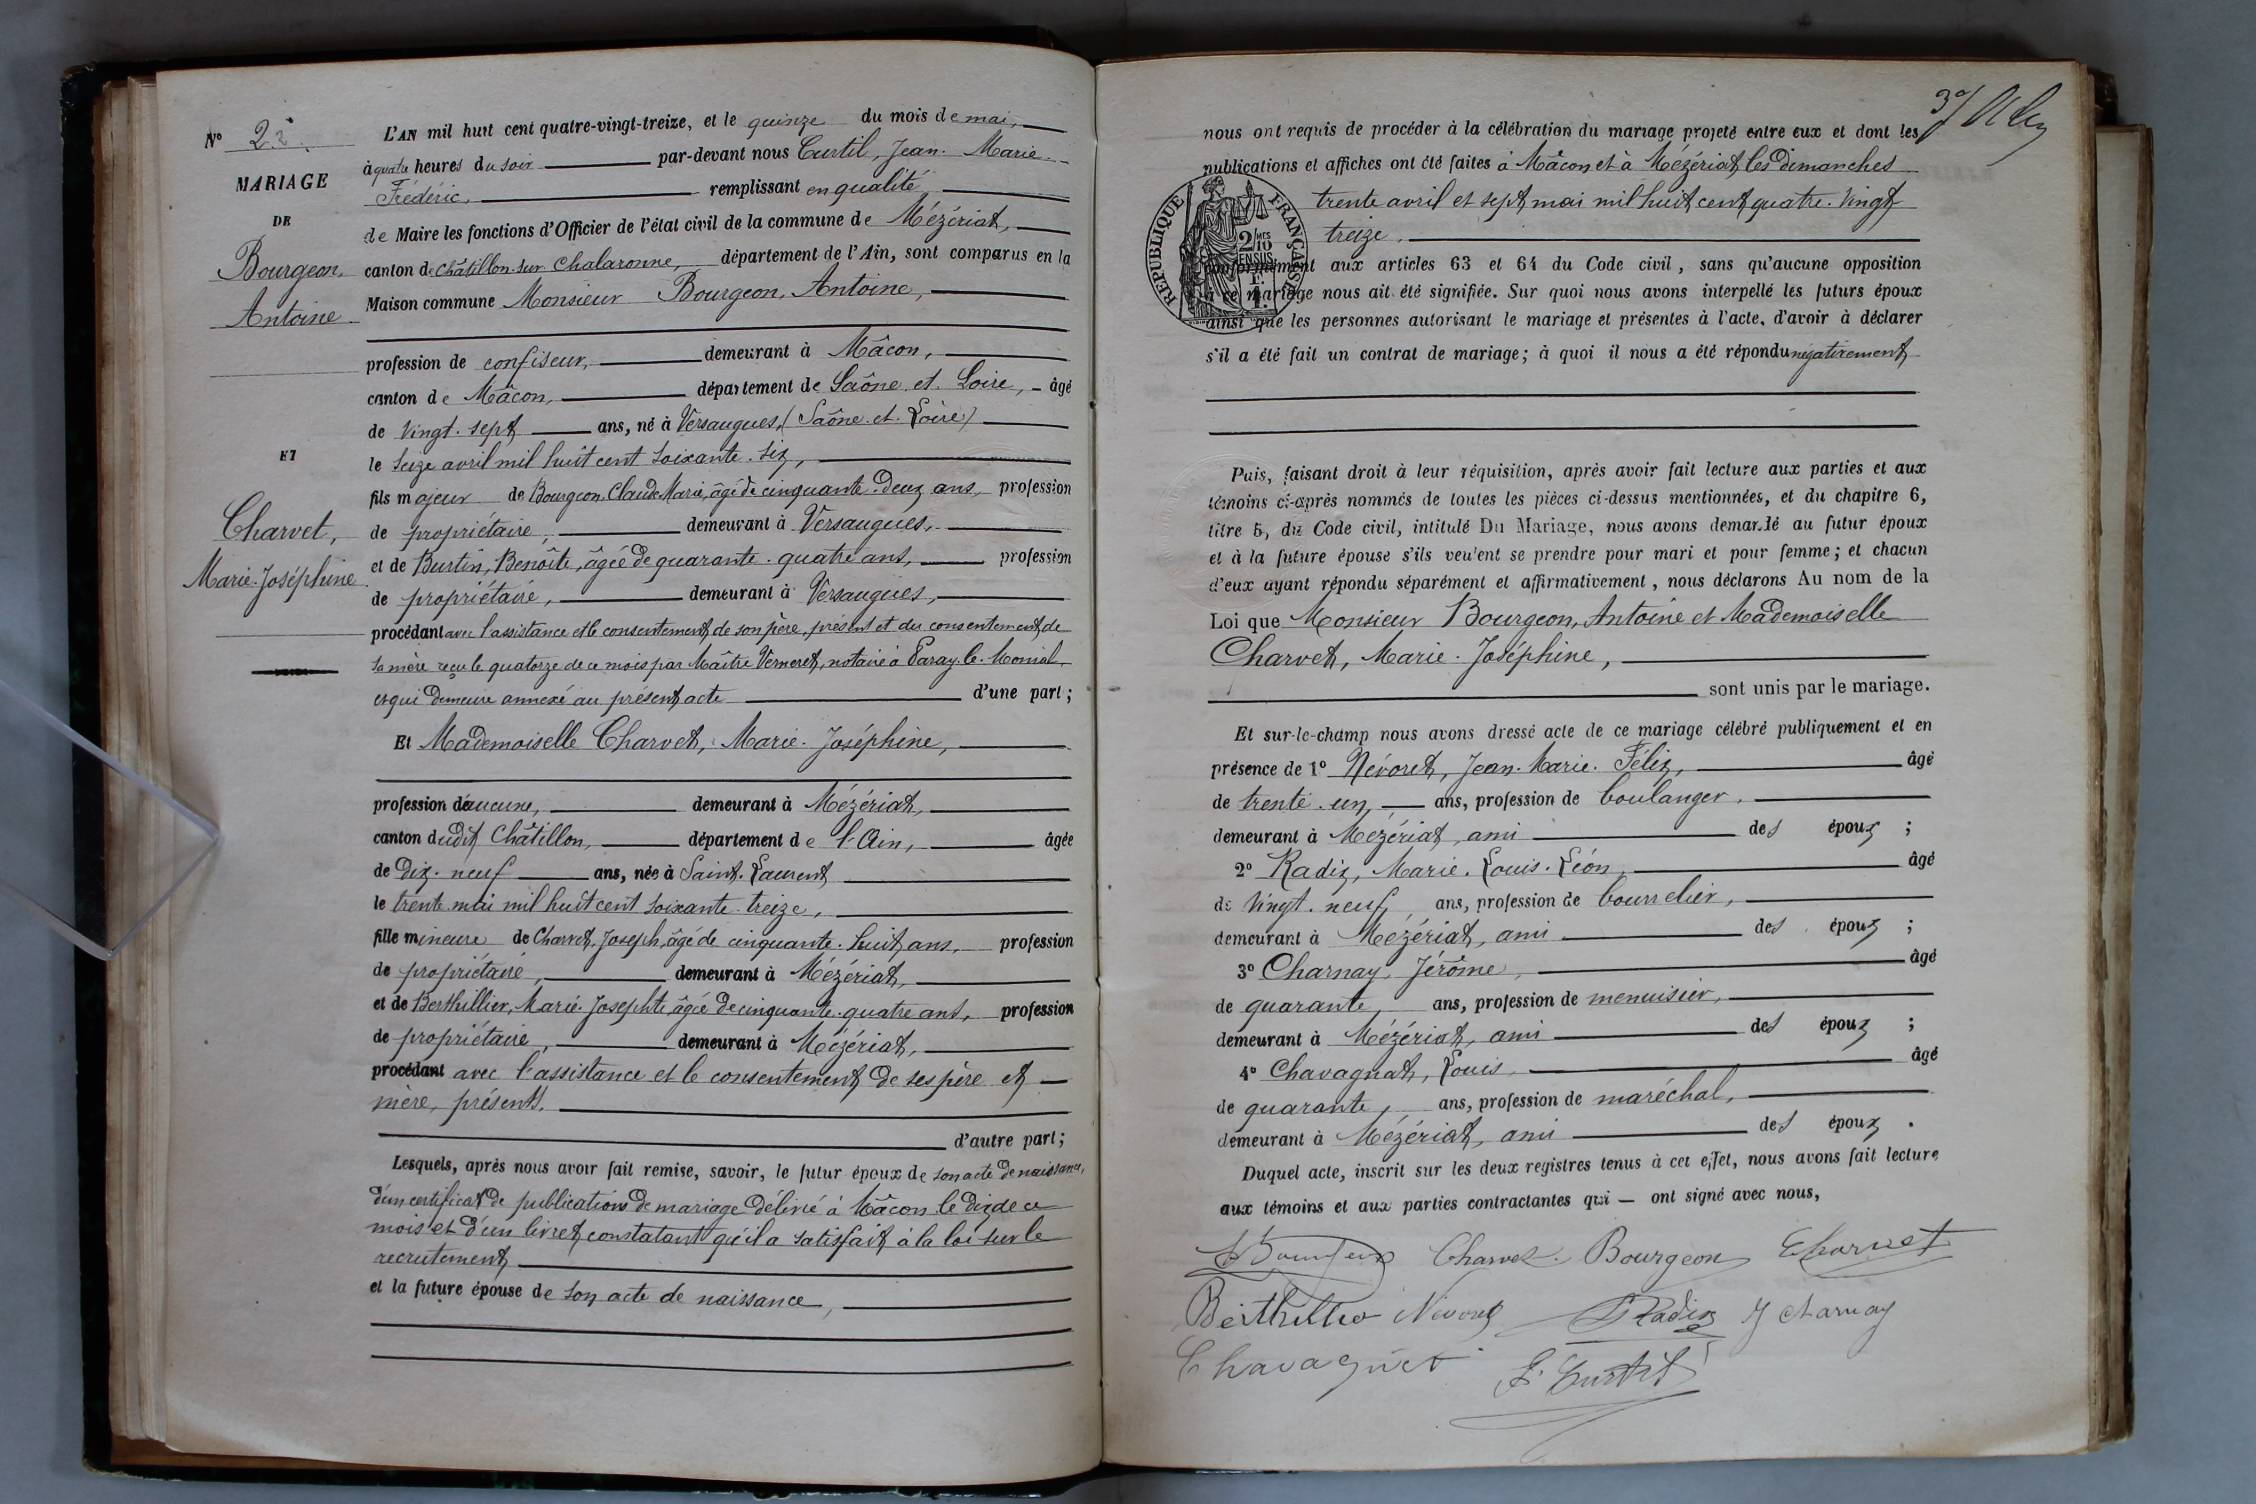 Nº
MARIAGE
DE
Bourgeon,
Antoine
ET
Charvet,
Marie-Joséphine
L'AN mil huit cent quatre-vingt-treize, et le quinze du mois de mai,
à quatre heures du soir par-devant nous Curtil, Jean-Marie-
Frédéric, remplissant en qualité
de Maire les fonctions d'Officier de l'état civil de la commune de Mézériat,
canton de Châtillon-sur-Chalaronne, département de l'Ain, sont comparus en la
Maison commune Monsieur Bourgeon, Antoine,
profession de confiseur, demeurant à Mâcon,
canton de Mâcon, département de Saône-et-Loire, âgé
de vingt-sept ans, né à Versaugues, (Saône-et-Loire)
le seize avril mil huit cent soixante-six,
fils majeur de Bourgeon, Claude Marie, âgé de cinquante-deux ans, profession
de propriétaire, demeurant à Versaugues,
et de Burtin, Benoîte, âgée de quarante-quatre ans, profession
de propriétaire, demeurant à Versaugues,
procédant avec l'assistance et le consentement de son père, présent et du consentement de
sa mère reçu le quatorze de ce mois par Maître Verneret, notaire à Paray-le-Monial
et qui demeure annexé au présent acte d'une part;
Et Mademoiselle Charvet, Marie-Joséphine,
profession d'aucune, demeurant à Mézériat,
canton dudit Châtillon, département de l'Ain, âgée
de dix-neuf ans, née à Saint-Laurent
le trente mai mil huit cent soixante-treize,
fille mineure de Charvet, Joseph, âgé de cinquante-huit ans, profession
de propriétaire, demeurant à Mézériat,
et de Berthillier, Marie-Josephte, âgée de cinquante-quatre ans, profession
de propriétaire, demeurant à Mézériat,
procédant avec l'assistance et le consentement de ses père et
mère, présents,
d'autre part;
Lesquels, après nous avoir fait remise, savoir, le futur époux de son acte de naissance,
d'un certificat de publications de mariage délivré à Mâcon le dix de ce
mois et d'un livret constatant qu'il a satisfait à la loi sur le
recrutement
et la future épouse de son acte de naissance,
nous ont requis de procéder à la célébration du mariage projeté entre eux et dont les
publications et affiches ont été faites à Mâcon et à Mézériat, les dimanches
trente avril et sept mai mil huit cent quatre-vingt
treize.
RÉPUBLIQUE FRANÇAISE
2/10MES
EN SUS
conformément aux articles 63 et 64 du Code civil, sans qu'aucune opposition
à ce mariage nous ait été signifiée. Sur quoi nous avons interpellé les futurs époux
ainsi que les personnes autorisant le mariage et présentes à l'acte, d'avoir à déclarer
s'il a été fait un contrat de mariage; à quoi il nous a été répondu négativement
Puis, faisant droit à leur réquisition, après avoir fait lecture aux parties et aux
témoins ci-après nommés de toutes les pièces ci-dessus mentionnées, et du chapitre 6,
titre 5, du Code civil, intitulé Du Mariage, nous avons demandé au futur époux
et à la future épouse s'ils veulent se prendre pour mari et pour femme; et chacun
d'eux ayant répondu séparément et affirmativement, nous déclarons Au nom de la
Loi que Monsieur Bourgeon, Antoine et Mademoiselle
Charvet, Marie-Joséphine,
sont unis par le mariage.
Et sur-le-champ nous avons dressé acte de ce mariage célébré publiquement et en
présence de 1º Névoret, Jean-Marie-Félix, âgé
de trente-un, ans, profession de boulanger,
demeurant à Mézériat, ami des époux;
2º Radix, Marie-Louis-Léon, âgé
de vingt-neuf, ans, profession de bourrelier,
demeurant à Mézériat, ami des époux;
3º Charnay, Jérôme, âgé
de quarante, ans, profession de menuisier,
demeurant à Mézériat, ami des époux;
4º Chavagnat, Louis, âgé
de quarante, ans, profession de maréchal,
demeurant à Mézériat, ami des époux.
Duquel acte, inscrit sur les deux registres tenus à cet effet, nous avons fait lecture
aux témoins et aux parties contractantes qui — ont signé avec nous,
Charvet Bourgeon Charvet
Névoret Radix J Charnay